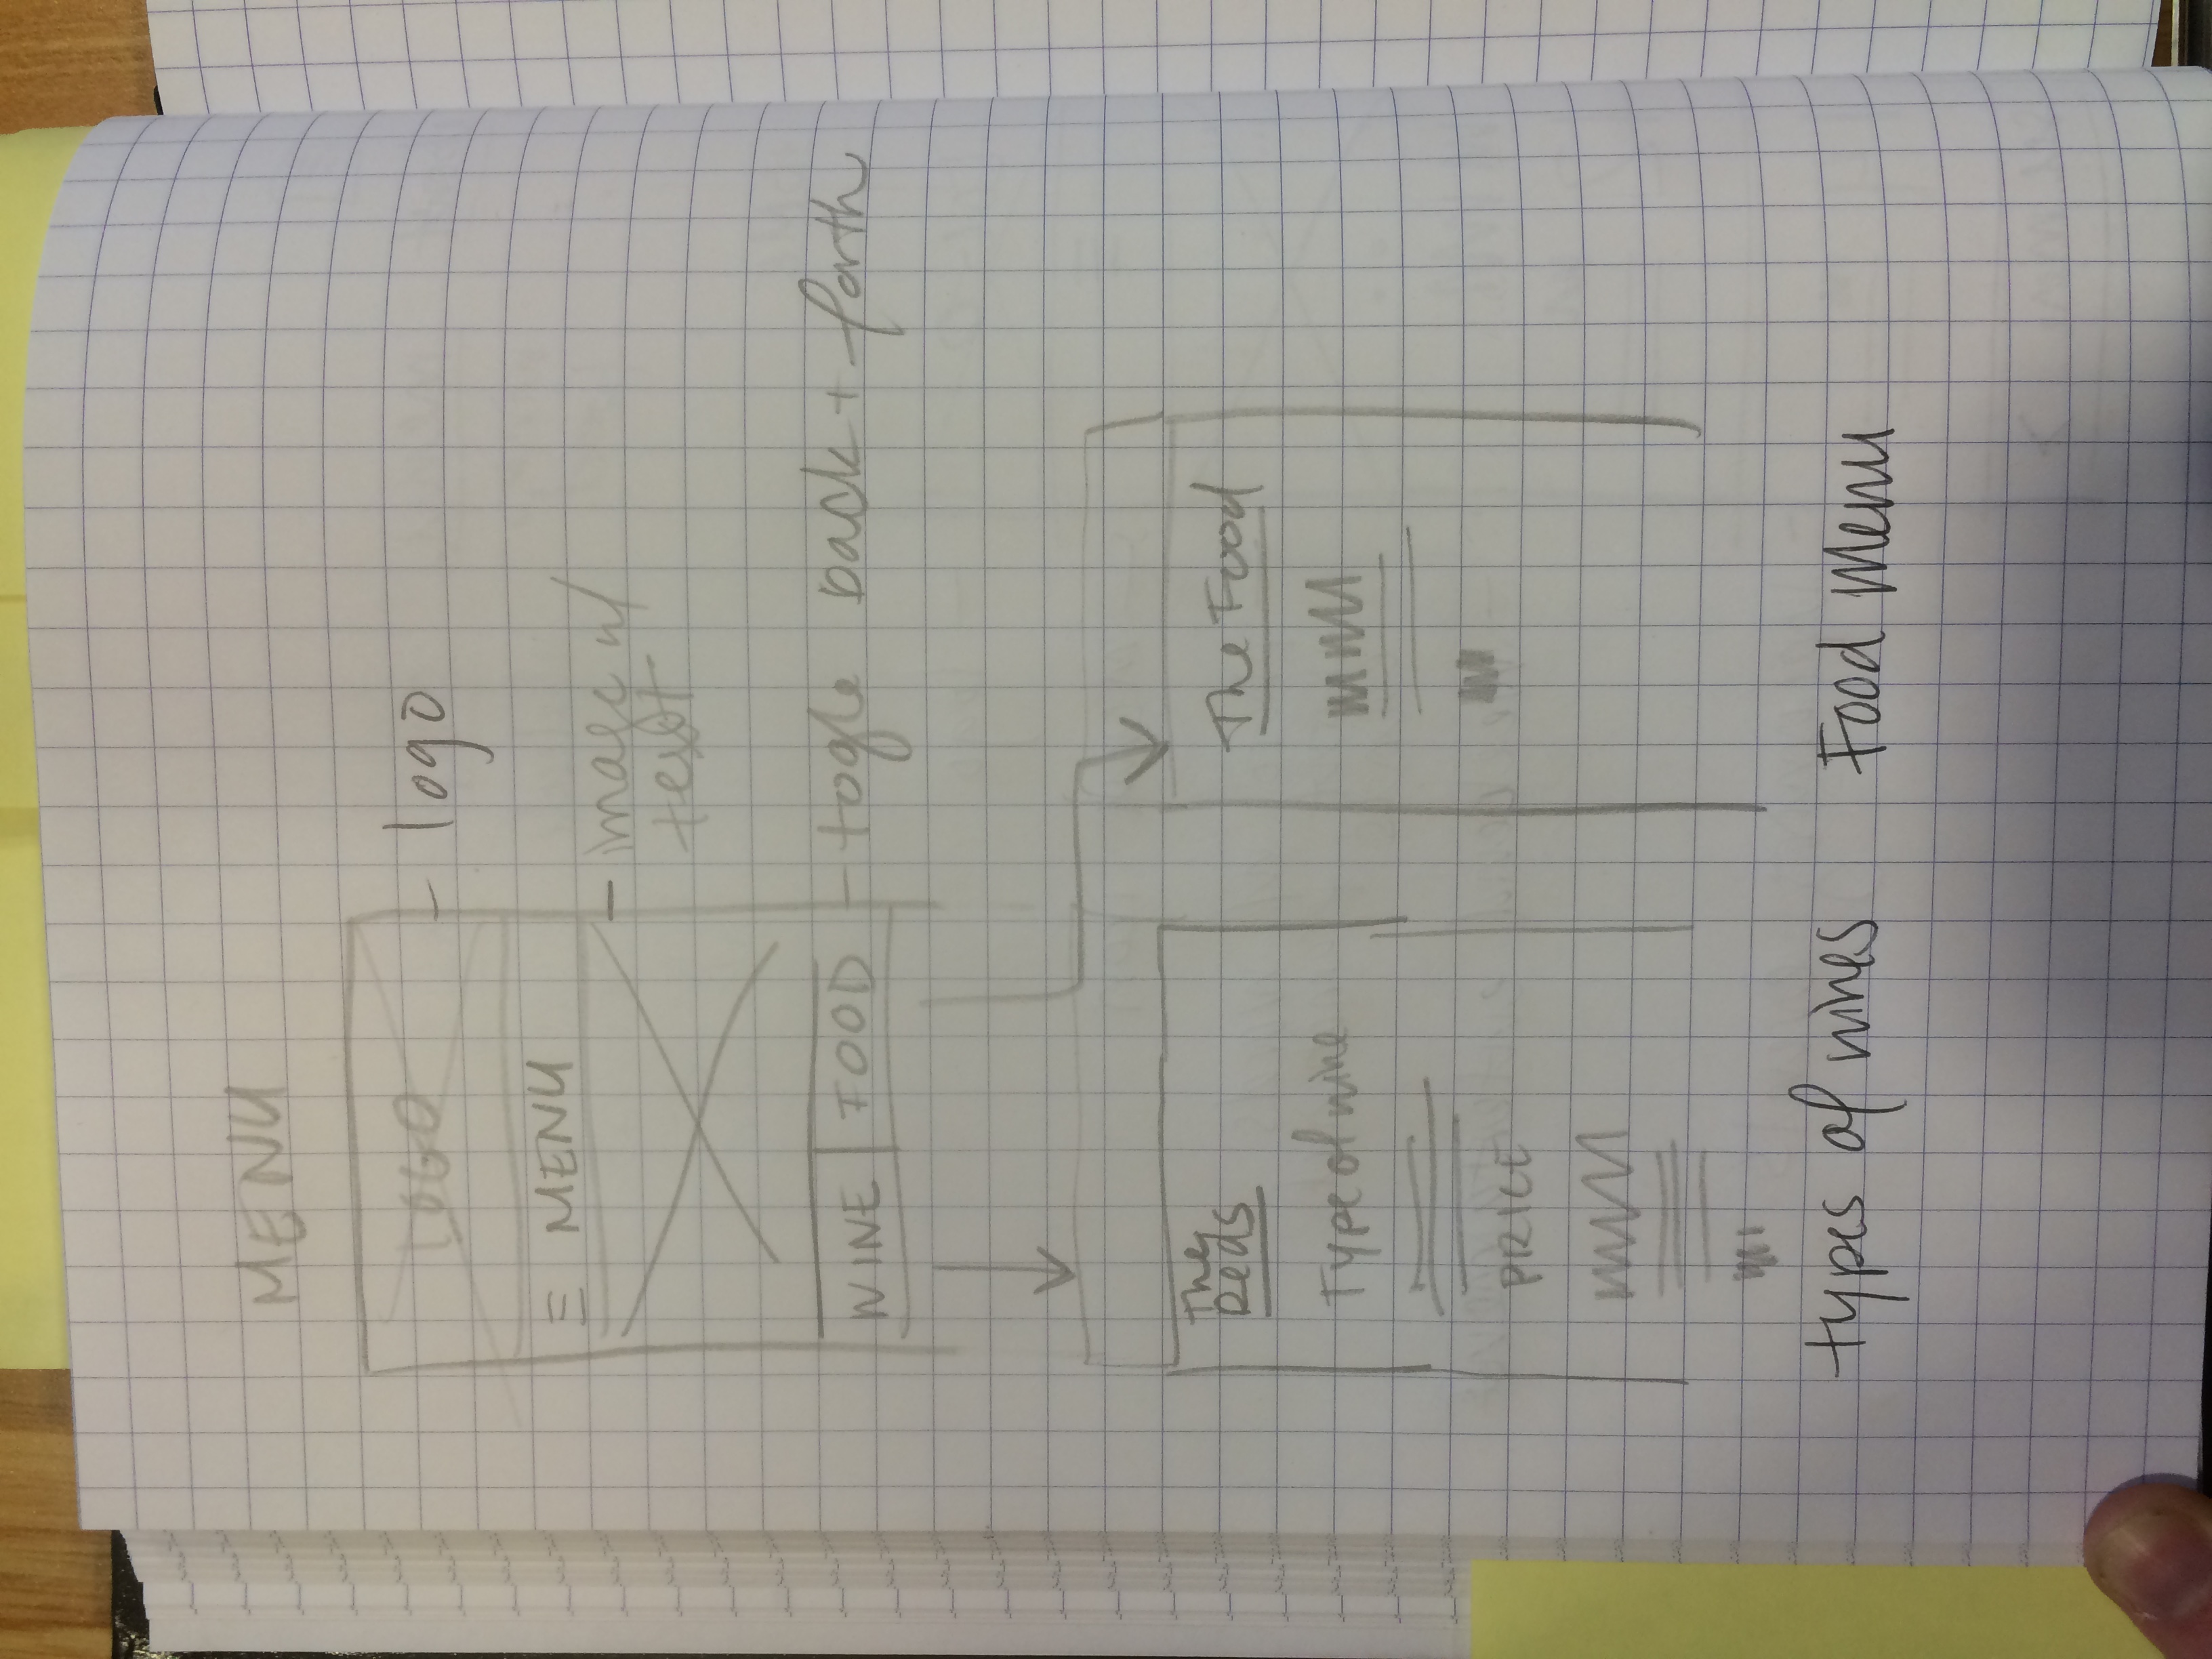 MENU
LOGO
- logo
≡ MENU
- image w/
text
WINE | FOOD
- togle back + forth
The
Reds
Type of wine
PRICE
The Food
types of wines
Food Menu